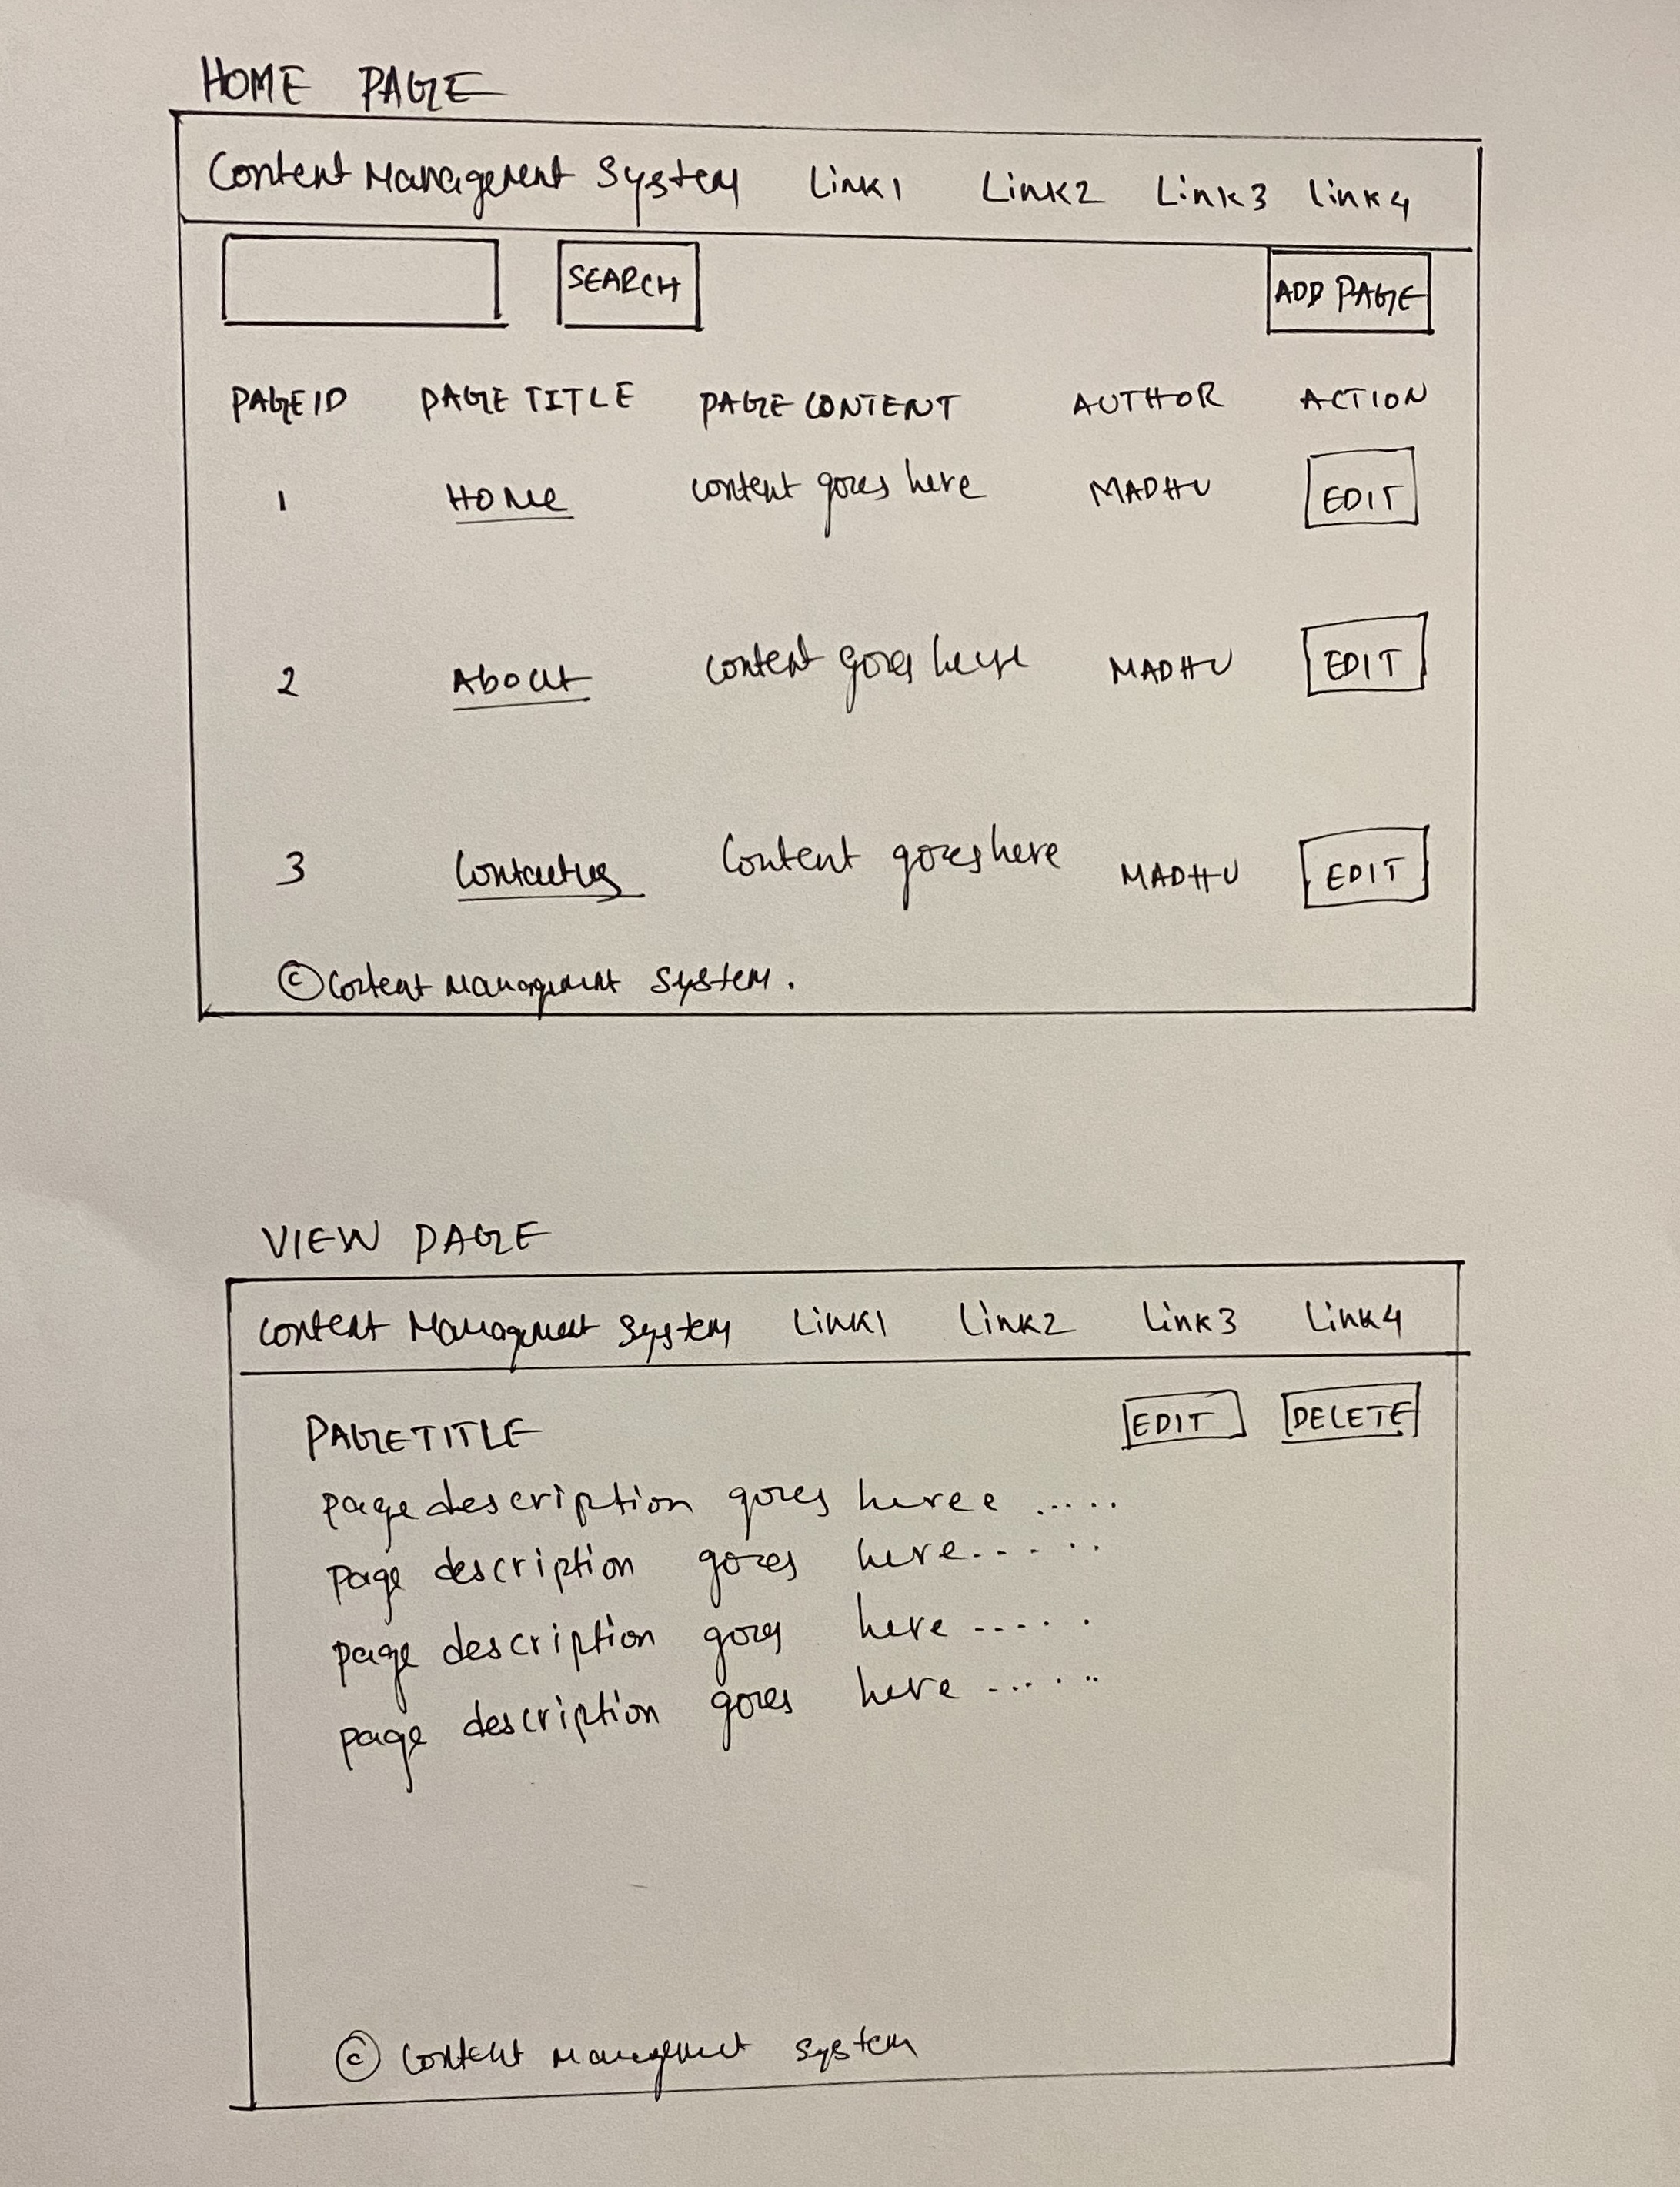 HOME PAGE
Content Management System Link1 Link2 Link3 Link4
SEARCH ADD PAGE
PAGEID PAGE TITLE PAGE CONTENT AUTHOR ACTION
1 HOME content goes here MADHU EDIT
2 About content goes here MADHU EDIT
3 Contactus Content goes here MADHU EDIT
© Content Management System.
VIEW PAGE
Content Management System Link1 Link2 Link3 Link4
PAGETITLE EDIT DELETE
page description goes heree .....
page description goes here.....
page description goes here .....
page description goes here ......
© Content Management System